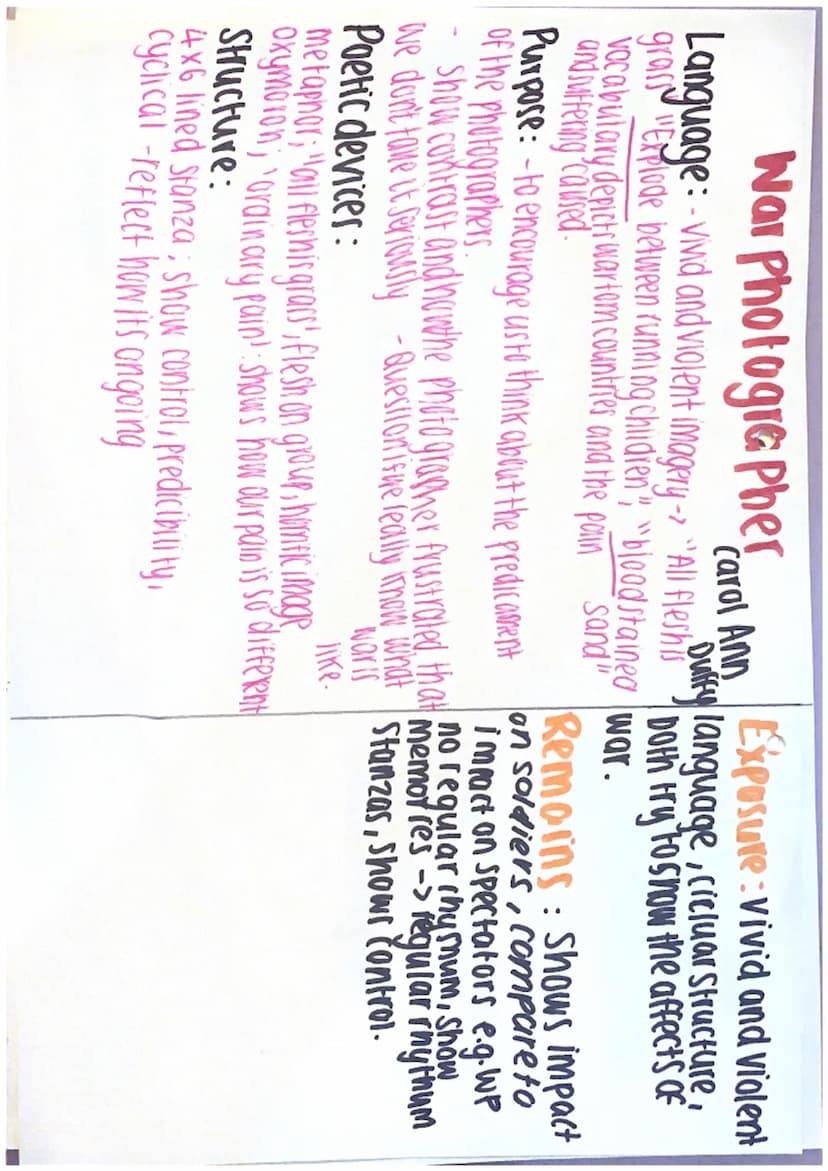 War Photographer
Carol Ann
Duffy
Language: - vivid and violent imagery -> "All flesh is
grass" "Explode between running children", "bloodstained
vocabulary depict war torn countries and the pain sand"
and suffering caused.
Purpose: - to encourage us to think about the predicament
of the photographers.
- show contrast and how the photographer frustrated that
we don't take it seriously - question if we really know what
war is
like.
Poetic devices:
metaphor; "all flesh is grass', flesh on group, horrific image
oxymoron; 'ordinary pain': shows how our pain is so different
Structure:
4x6 lined stanza; show control, predicibility,
cyclical - reflect how its ongoing
Exposure: vivid and violent
language, cicluar structure,
both try to show the affects of
war.
Remains: shows impact
on soldiers, compare to
impact on spectators e.g. WP
no regular rhythum, show
memories -> regular rhythum
stanzas, shows control.